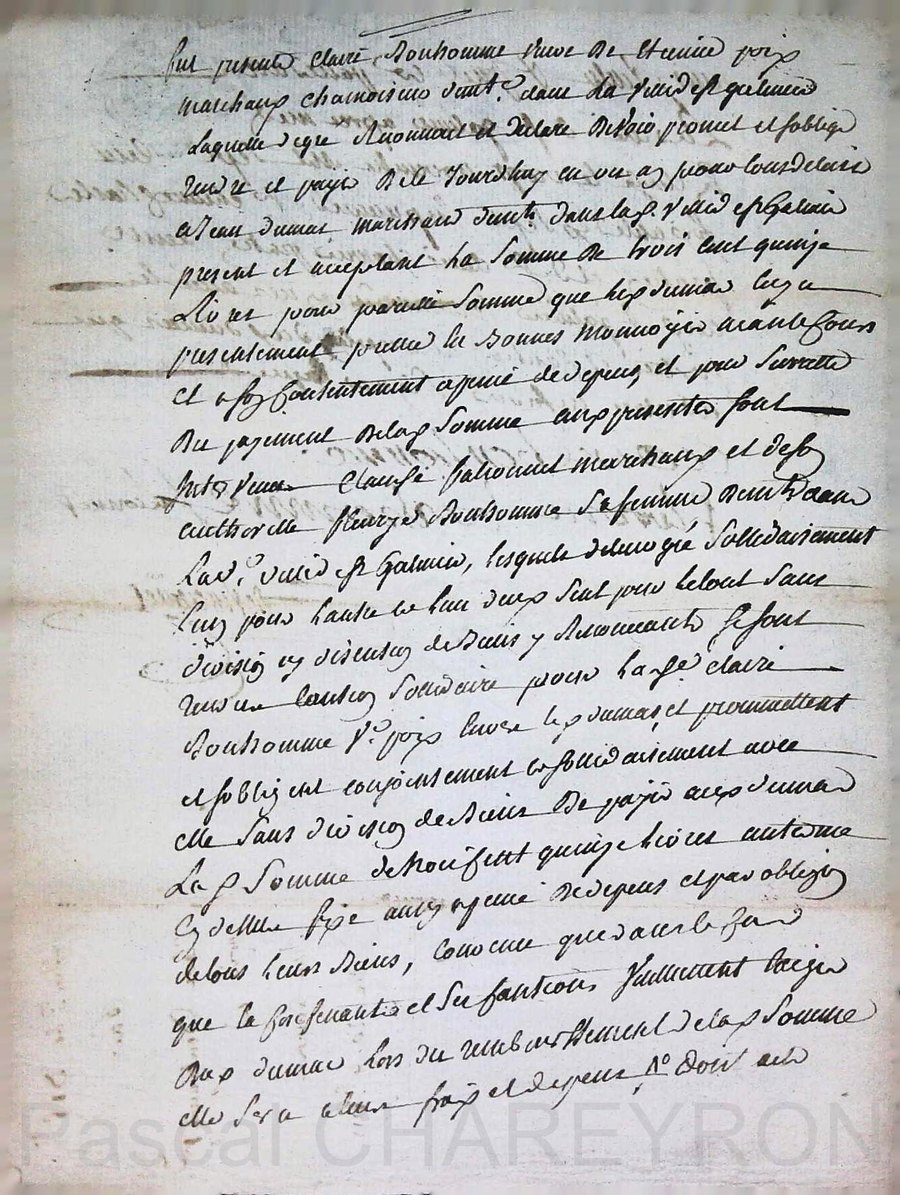 fut presente claire Bonhomme veuve De Etienne poix
marchand chamoiseur dem.t dans La ville de st galmier
Laquelle de gré Reconnait et declare Devoir promet et soblige
rendre et payer De ce Jourdhuy en un an pour tous delais
a Jean dumas marchand dem.t dans lad. ville de st Galmier
present et acceptant La Somme De trois cent quinze
Livres pour pareille Somme que led dumas luy a
presentement prettée en Bonnes monnoyes aiant Cours
et a son Contentement a peine de depens, et pour Surretté
Du payement De lad Somme aux presentes sont
Intervenus Claude marchand et de soy
authorisée fleurye Bonhomme sa femme Demt dans
Lad.e ville de st Galmier, lesquels de leur gré Sollidairement
L'un pour Lautre et Lun deux seul pour le tout Sans
division ny discution de Biens y Renonceants se sont
rendus Caution Sollidaire pour Lad. claire
Bonhomme v.e poix envers led dumas, et promettent
et sobligent conjointement et sollidairement avec
elle Sans division de Biens De payer aud dumas
La d Somme de trois cent quinze Livres au terme
Cy dessus fixé aussy a peine De depens et par obligation
de tous Leurs Biens, Convenu que dans le Cas
que la et Ses cautions
Dud dumas Lors du remboursement de lad Somme
elle Sera a leurs fraix et depens Dont acte
Pascal CHAREYRON